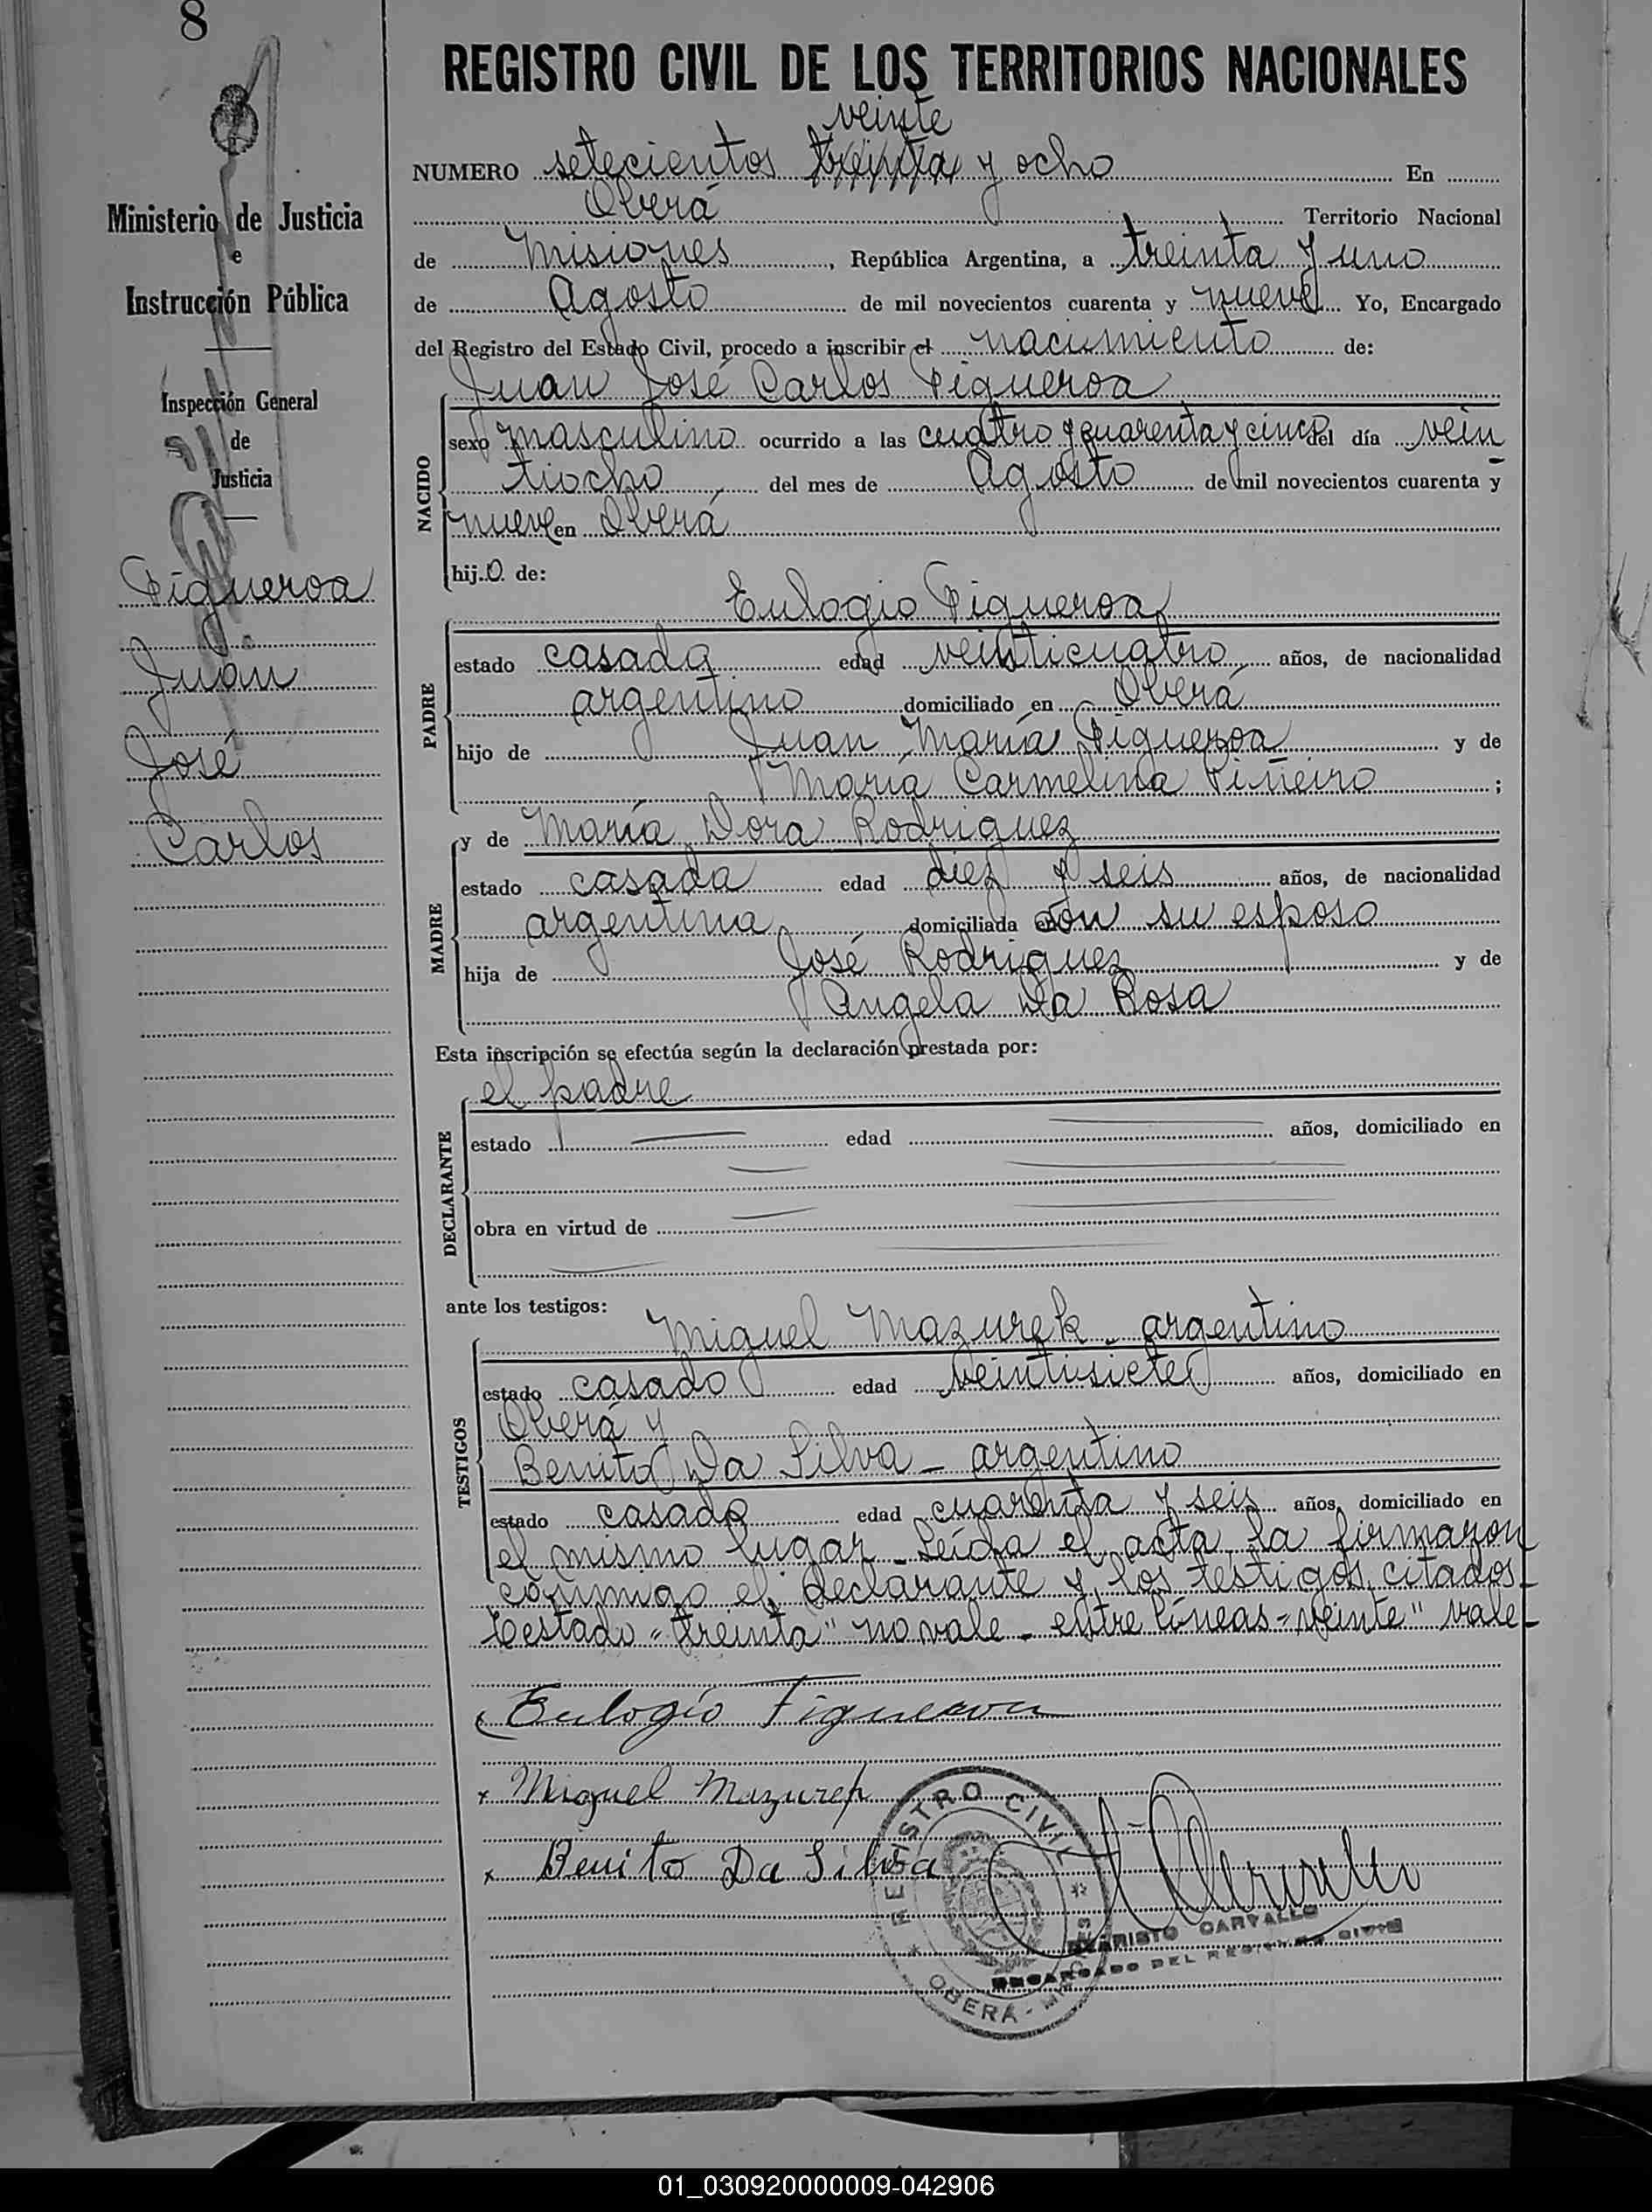 8
REGISTRO CIVIL DE LOS TERRITORIOS NACIONALES
veinte
NUMERO setecientos treinta y ocho En
Oberá Territorio Nacional
de Misiones, República Argentina, a treinta y uno
de Agosto de mil novecientos cuarenta y nueve Yo, Encargado
del Registro del Estado Civil, procedo a inscribir el nacimiento de:
Ministerio de Justicia
e
Instrucción Pública
Inspección General
de
Justicia
Figueroa
Juan
José
Carlos
NACIDO
Juan José Carlos Figueroa
sexo masculino ocurrido a las cuatro y cuarenta y cinco del día vein
tiocho del mes de Agosto de mil novecientos cuarenta y
nueve en Oberá
hij.o. de:
PADRE
Eulogio Figueroa
estado casada edad veinticuatro años, de nacionalidad
argentino domiciliado en Oberá
hijo de Juan María Figueroa y de
María Carmelina Piñeiro ;
MADRE
y de María Dora Rodriguez
estado casada edad diez y seis años, de nacionalidad
argentina domiciliada con su esposo
hija de José Rodriguez y de
Angela Da Rosa
Esta inscripción se efectúa según la declaración prestada por:
DECLARANTE
el padre
estado edad años, domiciliado en
obra en virtud de
ante los testigos:
TESTIGOS
Miguel Mazurek - argentino
estado casado edad veintisiete años, domiciliado en
Oberá y
Benito Da Silva - argentino
estado casado edad cuarenta y seis años, domiciliado en
el mismo lugar - Leída el acta, la firmaron
conmigo el declarante y los testigos citados -
Testado "treinta" no vale - entre líneas = "veinte" vale -
Eulogio Figueroa
x Miguel Mazurek
x Benito Da Silva
REGISTRO CIVIL
OBERÁ - MISIONES
EVARISTO CARVALLO
ENCARGADO DEL REGISTRO CIVIL
01_030920000009-042906